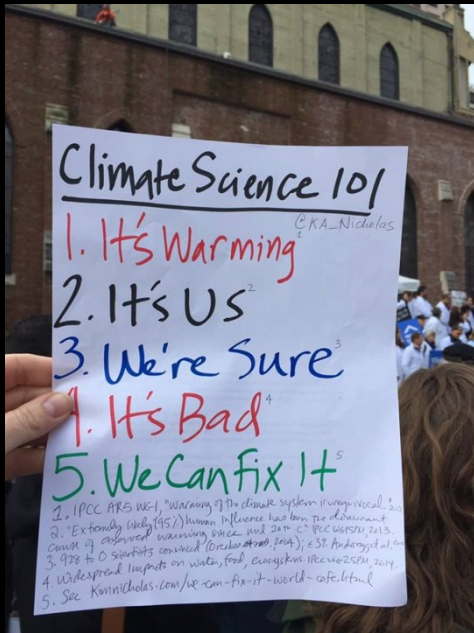 Climate Science 101
@KA_Nicholas
1. It's Warming¹
2. It's Us²
3. We're Sure³
4. It's Bad⁴
5. We Can Fix It⁵
1. IPCC AR5 WG1, "Warming of the climate system is unequivocal."
2. "Extremely likely (95%) human influence has been the dominant
cause of observed warming since mid 20th C" IPCC WG1SPM, 2013.
3. 928 to 0 scientists convinced (Oreskes 2004); Anderegg et al.
4. Widespread impacts on water, food, ecosystems. IPCC WG2SPM, 2014.
5. See Kimnicholas.com/we-can-fix-it-world-cafe.html